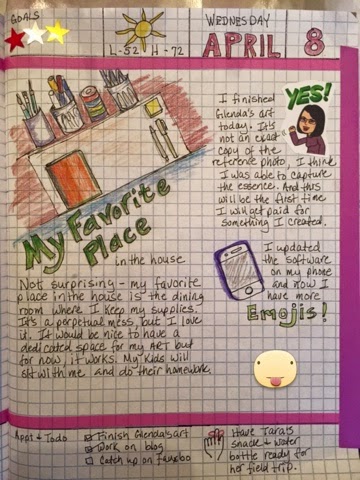 GOALS
WEDNESDAY
L-52 H-72
APRIL 8
YES!
I finished
Glenda's art
today. It's
not an exact
copy of the
reference photo, I think
I was able to capture
the essence. And this
will be the first time
I will get paid for
something I created.
My Favorite
Place
in the house
Not surprising - my favorite
place in the house is the dining
room where I keep my supplies.
It's a perpetual mess, but I love
it. It would be nice to have a
dedicated space for my ART but
for now, it works. My kids will
sit with me and do their homework.
I updated
the software
on my phone
and now I
have more
Emojis!
Appt & Todo
Finish Glenda's art
Work on blog
Catch up on
Have Tara's
snack & water
bottle ready for
her field trip.